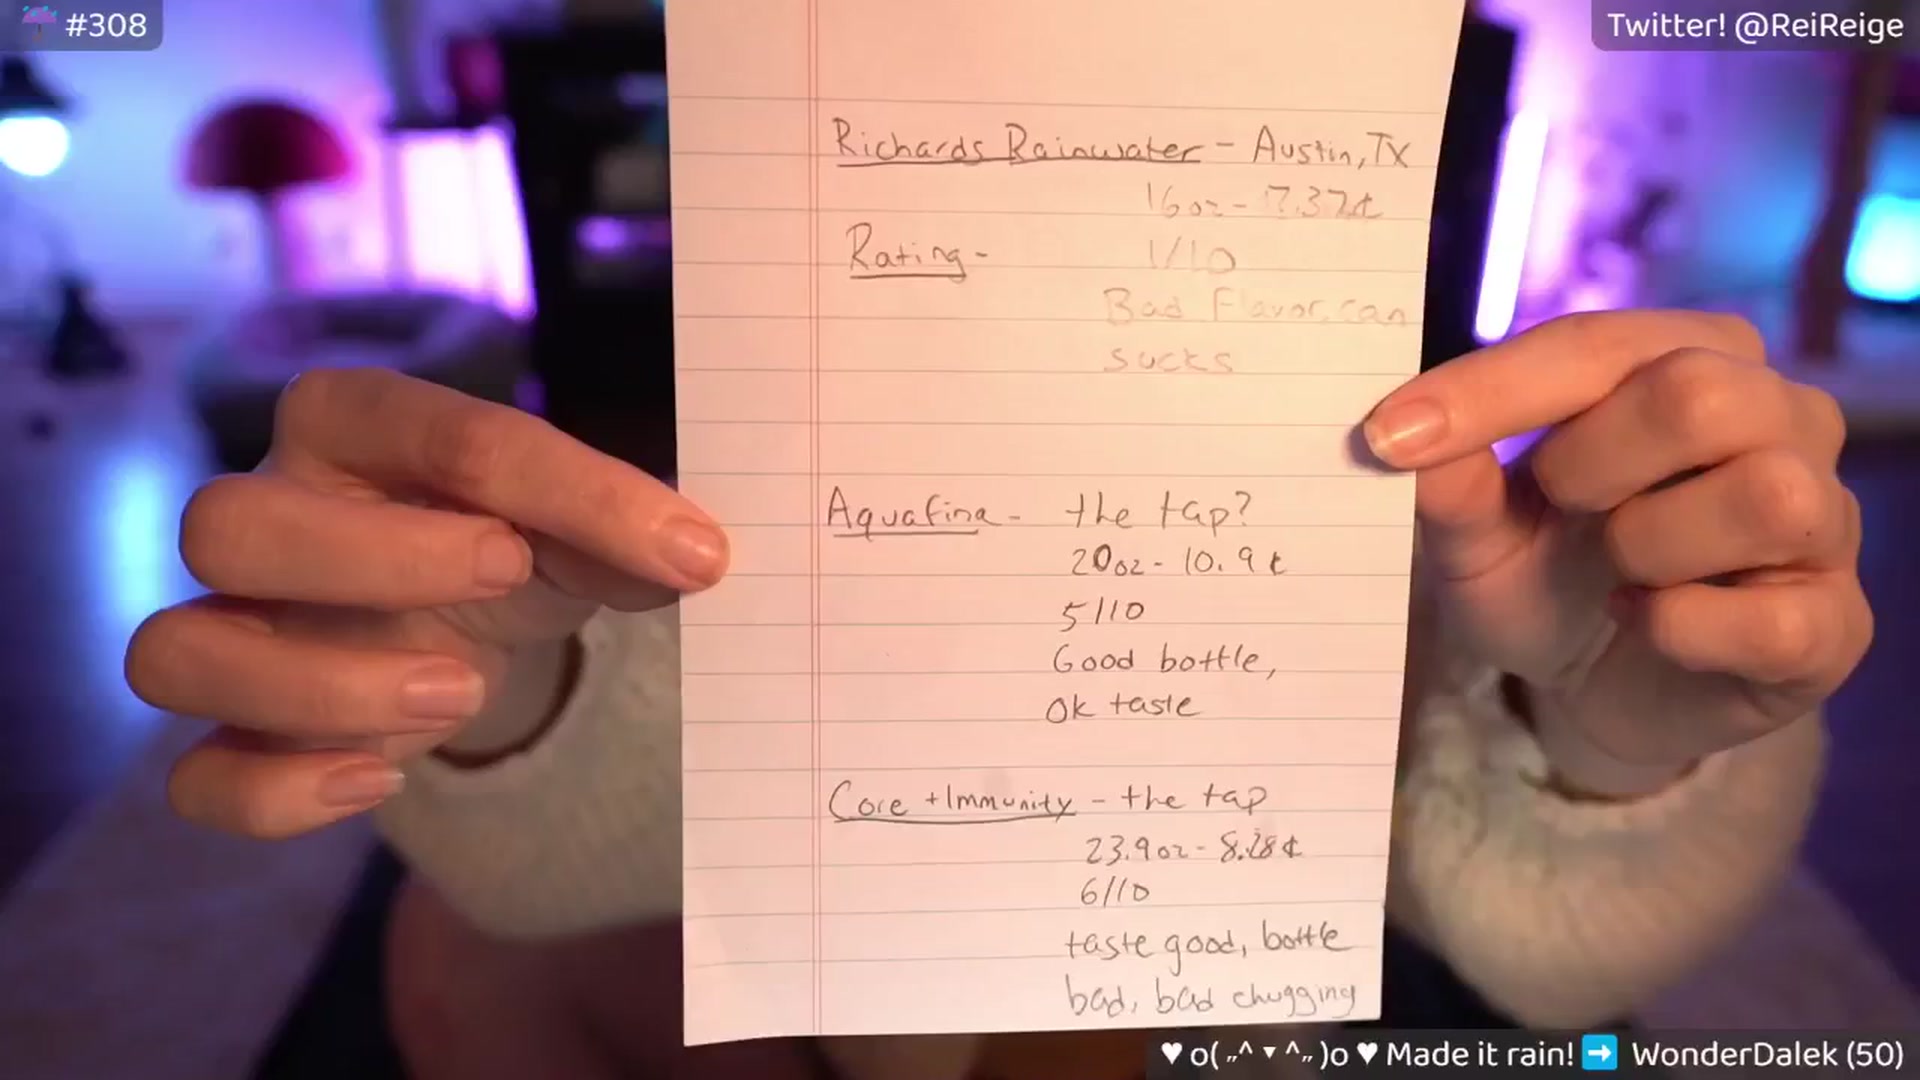 #308
Twitter! @ReiReige
Richards Rainwater - Austin, TX
16oz - 7.37¢
Rating - 1/10
Bad Flavor, can
sucks
Aquafina - the tap?
20oz - 10.9¢
5/10
Good bottle,
Ok taste
Core + Immunity - the tap
23.9oz - 8.28¢
6/10
taste good, bottle
bad, bad chugging
♥ o( „^ ▾ ^„ )o ♥ Made it rain! ➡ WonderDalek (50)